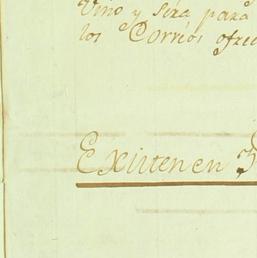 Vino y será para
los Correos ofre
Existen en